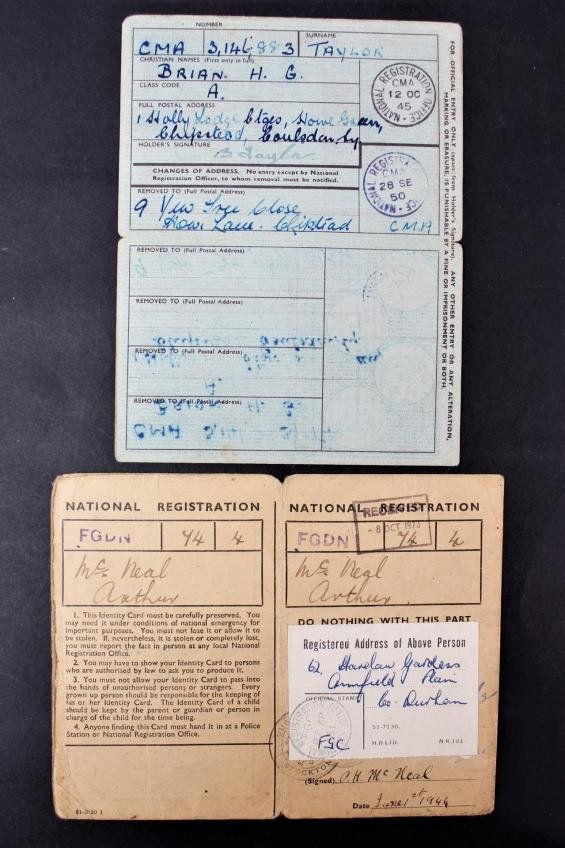 NUMBER SURNAME
CMA 3,146,883 TAYLOR
CHRISTIAN NAMES (First only in full)
BRIAN. H. G.
CLASS CODE
A.
FULL POSTAL ADDRESS
1 Holly Lodge Close, Howe Green,
Chipstead, Coulsdon, Sy
HOLDER'S SIGNATURE
B Taylor
CHANGES OF ADDRESS. No entry except by National
Registration Officer, to whom removal must be notified.
REMOVED TO (Full Postal Address)
9 Yew Tree Close
How Lane. Chipstead CMA
NATIONAL REGISTRATION OFFICE
CMA
12 OC
45
NATIONAL REGISTRATION OFFICE
CMA
28 SE
50
FOR OFFICIAL ENTRY ONLY (apart from Holder's Signature). ANY OTHER ENTRY OR ANY ALTERATION,
MARKING OR ERASURE, IS PUNISHABLE BY A FINE OR IMPRISONMENT OR BOTH.
REMOVED TO (Full Postal Address)
REMOVED TO (Full Postal Address)
REMOVED TO (Full Postal Address)
REMOVED TO (Full Postal Address)
NATIONAL REGISTRATION
FGDN 74 4
Mc Neal
Arthur
1. This Identity Card must be carefully preserved. You
may need it under conditions of national emergency for
important purposes. You must not lose it or allow it to
be stolen. If, nevertheless, it is stolen or completely lost,
you must report the fact in person at any local National
Registration Office.
2. You may have to show your Identity Card to persons
who are authorised by law to ask you to produce it.
3. You must not allow your Identity Card to pass into
the hands of unauthorised persons or strangers. Every
grown up person should be responsible for the keeping of
his or her Identity Card. The Identity Card of a child
should be kept by the parent or guardian or person in
charge of the child for the time being.
4. Anyone finding this Card must hand it in at a Police
Station or National Registration Office.
NATIONAL REGISTRATION
RECEIVED
- 8 OCT 1973
FGDN 74 4
Mc Neal
Arthur
DO NOTHING WITH THIS PART
Registered Address of Above Person
62, Gardens
Annfield Plain
Co. Durham
OFFICIAL STAMP
FGC
51-7130.
H.B.LTD. N.R.101.
STOCKTON
(Signed) A. H. Mc Neal
Date June 1st 1944